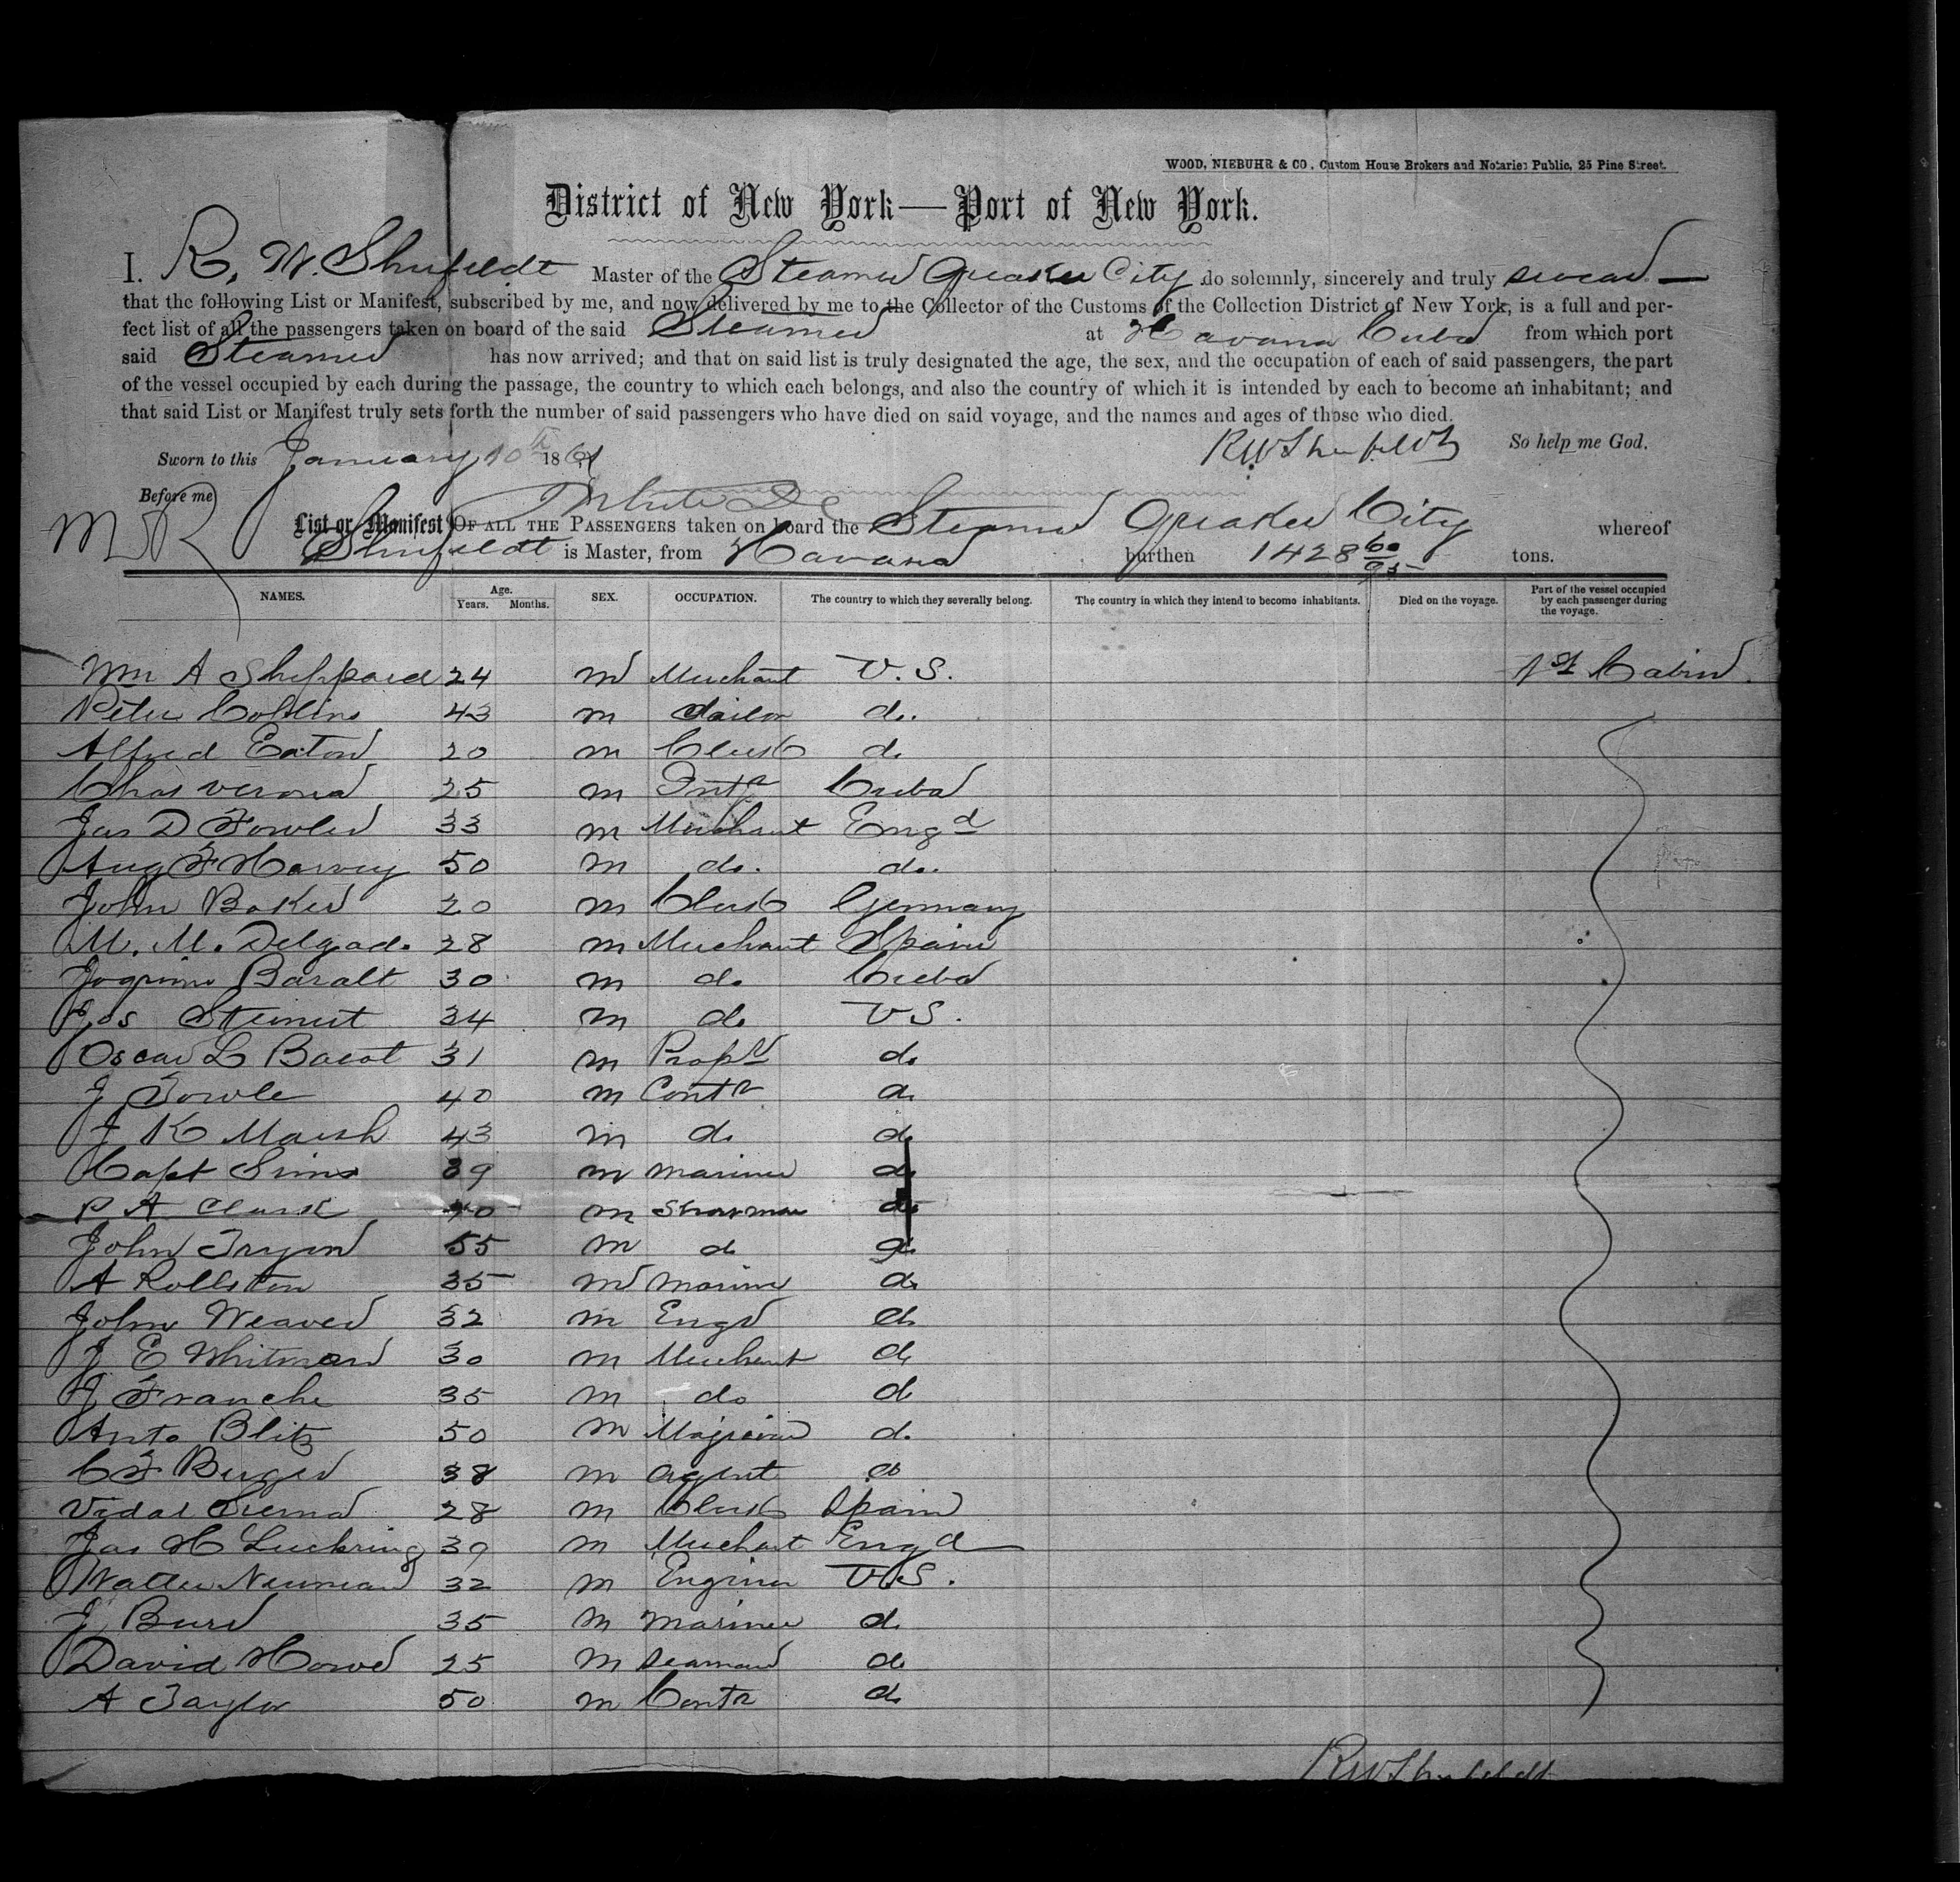 WOOD, NIEBUHR & CO, Custom House Brokers and Notaries Public, 25 Pine Street.
District of New York—Port of New York.
I. R. W. Shufeldt Master of the Steamer Quaker City do solemnly, sincerely and truly swear
that the following List or Manifest, subscribed by me, and now delivered by me to the Collector of the Customs of the Collection District of New York, is a full and per-
fect list of all the passengers taken on board of the said Steamer at Havana Cuba from which port
said Steamer has now arrived; and that on said list is truly designated the age, the sex, and the occupation of each of said passengers, the part
of the vessel occupied by each during the passage, the country to which each belongs, and also the country of which it is intended by each to become an inhabitant; and
that said List or Manifest truly sets forth the number of said passengers who have died on said voyage, and the names and ages of those who died.
RW Shufeldt So help me God.
Sworn to this January 10th 1861
Before me
List or Manifest OF ALL THE PASSENGERS taken on board the Steamer Quaker City whereof
Shufeldt is Master, from Havana burthen 1428 60/95 tons.
NAMES. Age. Years. Months. SEX. OCCUPATION. The country to which they severally belong. The country in which they intend to become inhabitants. Died on the voyage. Part of the vessel occupied by each passenger during the voyage.
Wm A Sheppard 24 m Merchant U.S. 1st Cabin
Peter Collins 43 m do.
Alfred Eaton 20 m Clerk do
Chas Verona 25 m Cuba
Jas D Fowler 33 m Merchant Engd
Aug F Harvey 50 m do. do.
John Baker 20 m Clerk Germany
M. M. Delgado 28 m Merchant Spain
Joquim Baralt 30 m do Cuba
Jos 34 m do U S.
Oscar L Bacot 31 m Propr do
J Towle 40 m Contr do
J K Marsh 43 m do do
Capt Sims 39 m mariner do
P A Clark 40 m Showman do
John Tryon 55 m do do
A Rollston 35 m mariner do
John Weaver 32 m Engr do
J E Whitman 30 m Merchant do
A Franche 35 m do do
Anto Blitz 50 m Magician do
C F Berger 38 m agent do
Vidal 28 m Clerk Spain
Jas H Luckring 39 m Merchant Engd
Walter Newman 32 m Engineer U.S.
J Burd 35 m mariner do
David Howe 25 m seaman do
A Taylor 50 m Contr do
RW Shufeldt